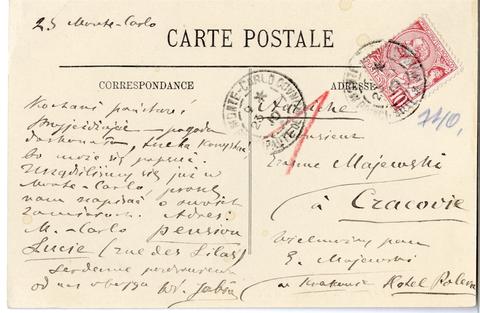 23 Monte-Carlo
CARTE POSTALE
CORRESPONDANCE
ADRESSE
Kochani państwo!
pogoda
doskonała,
bo może się popsuć.
Urządziliśmy się już w
Monte-Carlo proszę
nam napisać o swoich
zamiarach. Adres:
M. Carlo pension
Lucie (rue des Lilas)
Serdeczne pozdrowienia
od nas obojga
MONTE-CARLO
23
10
Autriche
Monsieur
Majewski
à Cracovie
Wielmożny pan
E. Majewski
w Krakowie Hotel
10